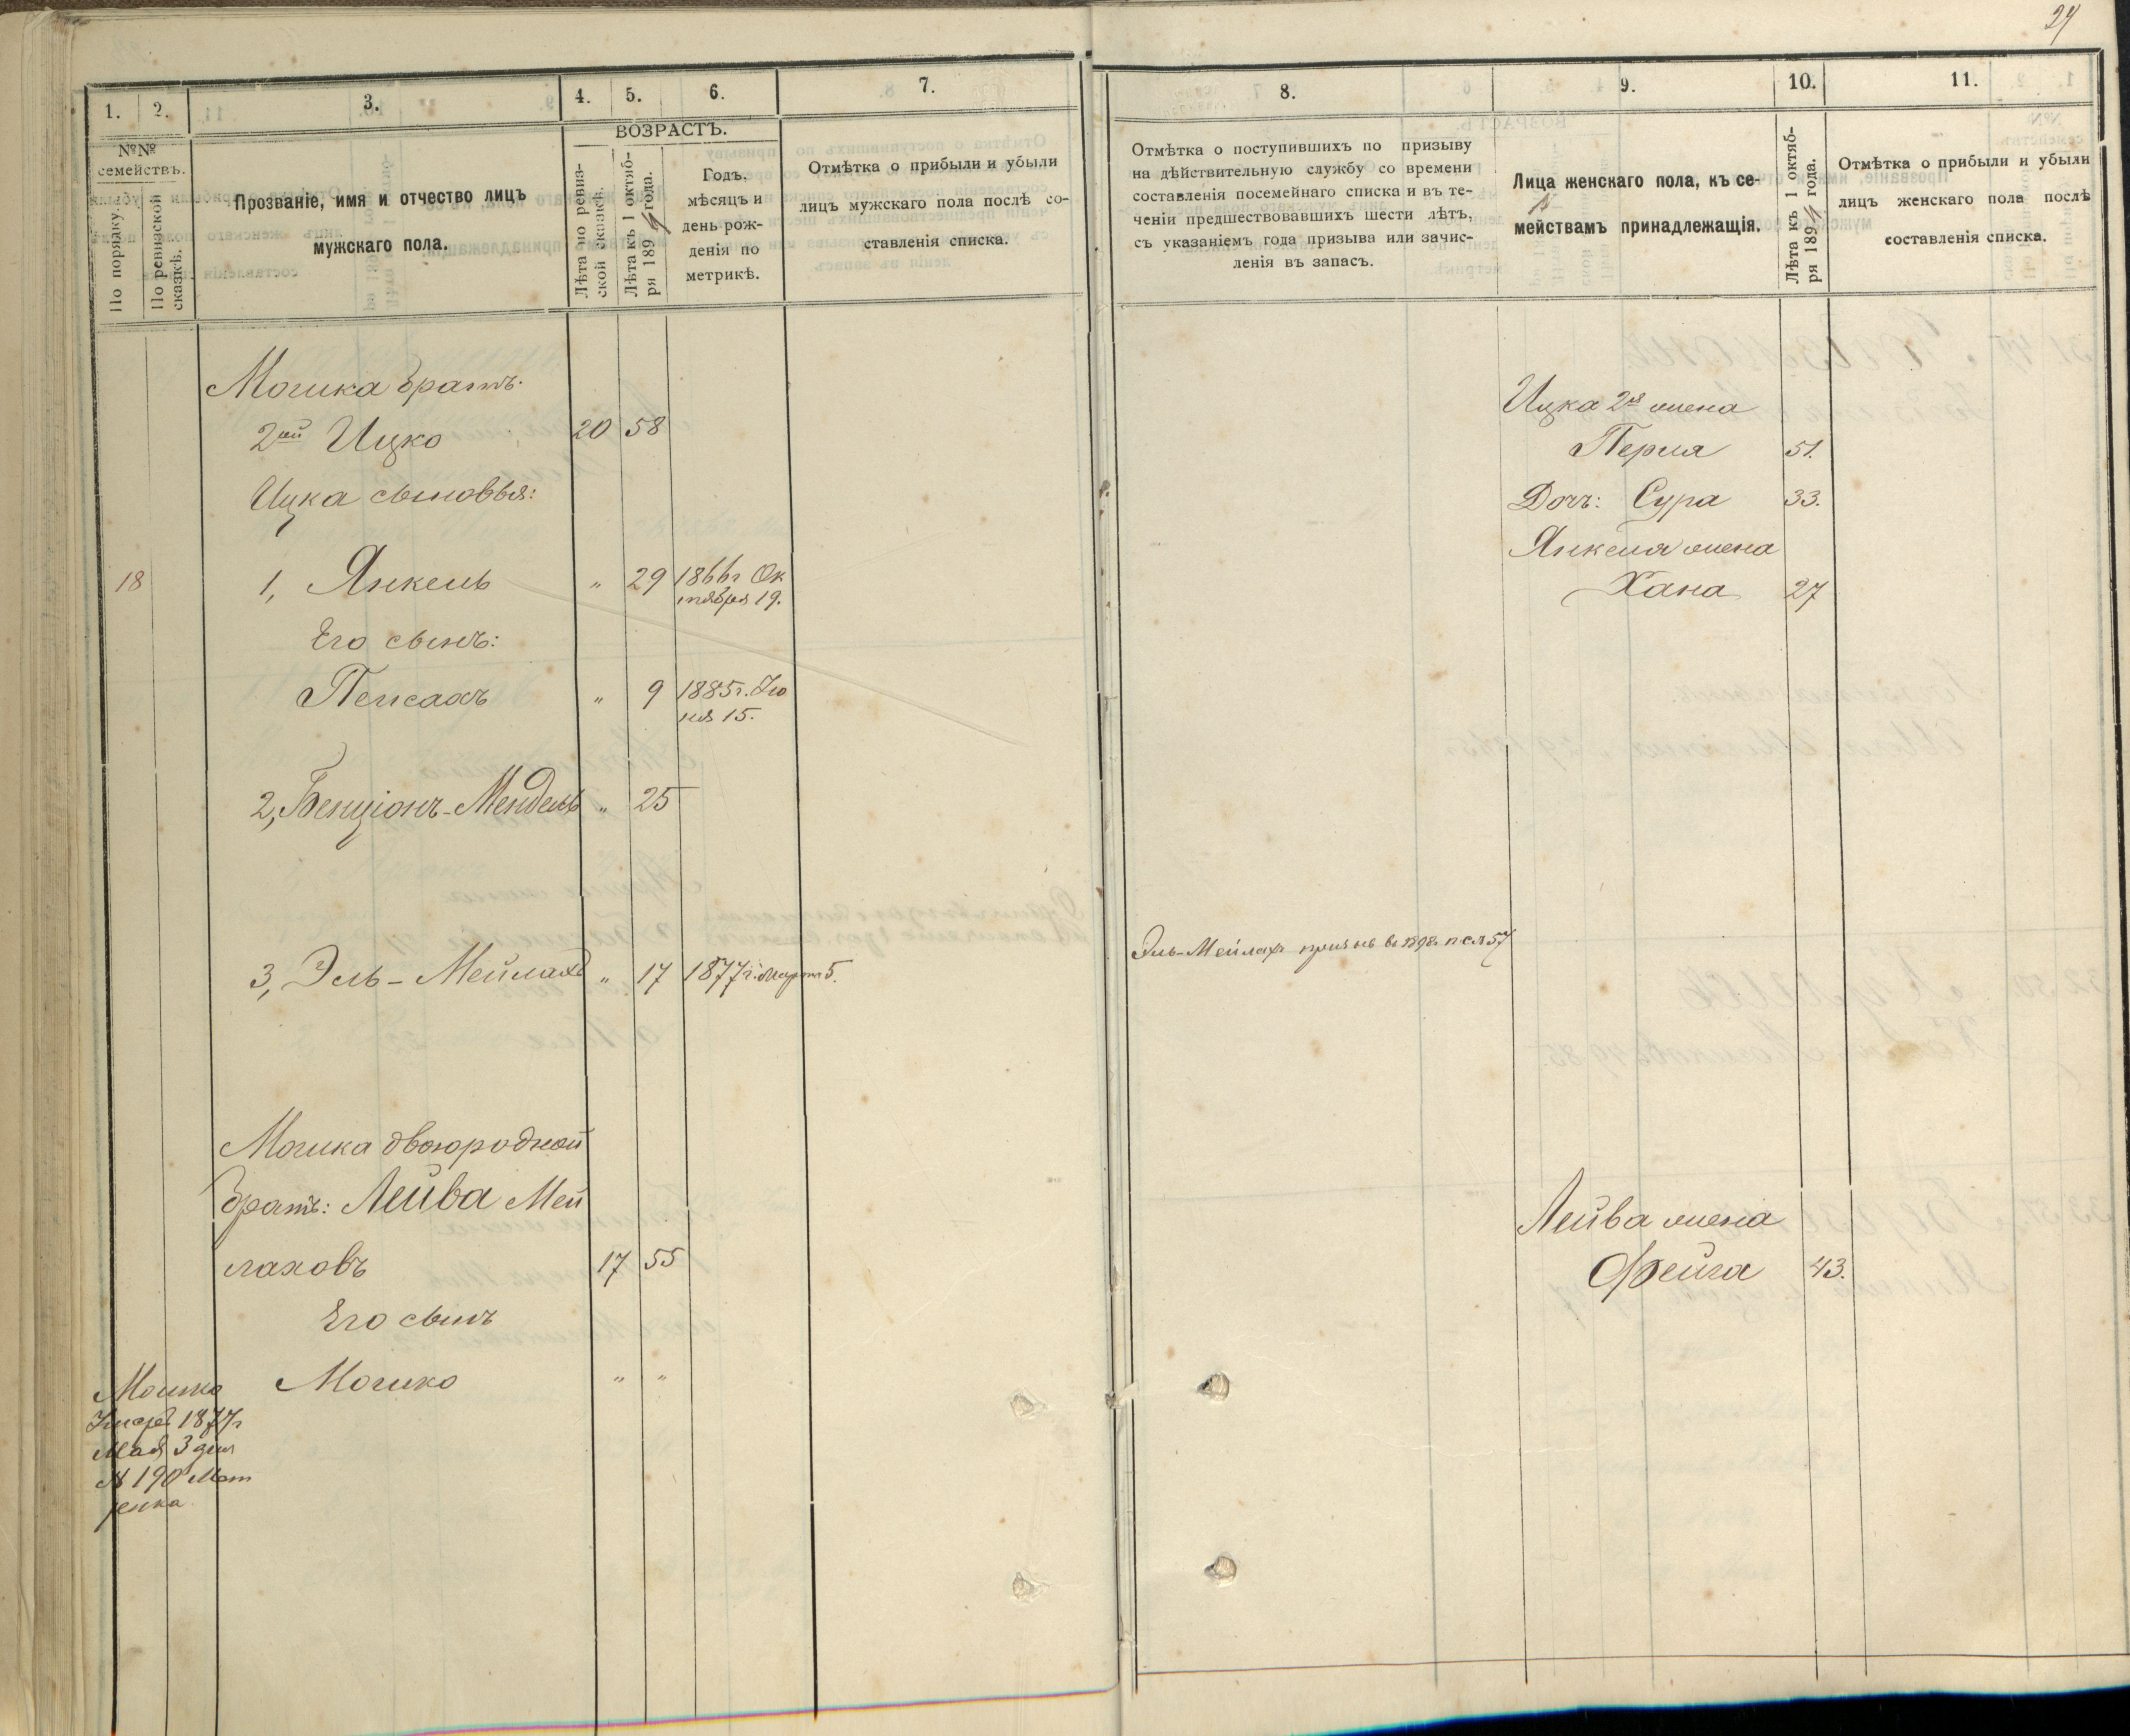 24
1.
2.
3.
4.
5.
6.
7.
№№
семействъ.
По порядку.
По ревизской
сказкѣ.
Прозваніе, имя и отчество лицъ
мужскаго пола.
ВОЗРАСТЪ.
Лѣта по ревиз-
ской сказкѣ.
Лѣта къ 1 октяб-
ря 1894 года.
Годъ,
мѣсяцъ и
день рож-
денія по
метрикѣ.
Отмѣтка о прибыли и убыли
лицъ мужскаго пола послѣ со-
ставленія списка.
8.
9.
10.
11.
Отмѣтка о поступившихъ по призыву
на дѣйствительную службу со времени
составленія посемейнаго списка и въ те-
ченіи предшествовавшихъ шести лѣтъ,
съ указаніемъ года призыва или зачис-
ленія въ запасъ.
Лица женскаго пола, къ се-
мействамъ принадлежащія.
Лѣта къ 1 октяб-
ря 1894 года.
Отмѣтка о прибыли и убыли
лицъ женскаго пола послѣ
составленія списка.
Мошка братъ.
2ой Ицко 20 58
Ицка сыновья:
18 1, Янкель " 29 1866г Ок
тября 19.
Его сынъ:
Пейсахъ " 9 1885г. Iю
ня 15.
2, Бенціонъ-Мендель " 25
3, Эль-Мейлахъ " 17 1877г. Март 5.
Мошка двоюродной
братъ: Лейба Мей
лаховъ 17 55
Его сынъ
Мошко " "
Мошко
1877г
Мая 3 дня
№ 190 Мет
рика
Ицка 2я жена
Перля 51.
Дочь: Сура 33.
Янкеля жена
Хана 27
Эль-Мейлахъ въ 1898г. 57
Лейба жена
Фейга 43.